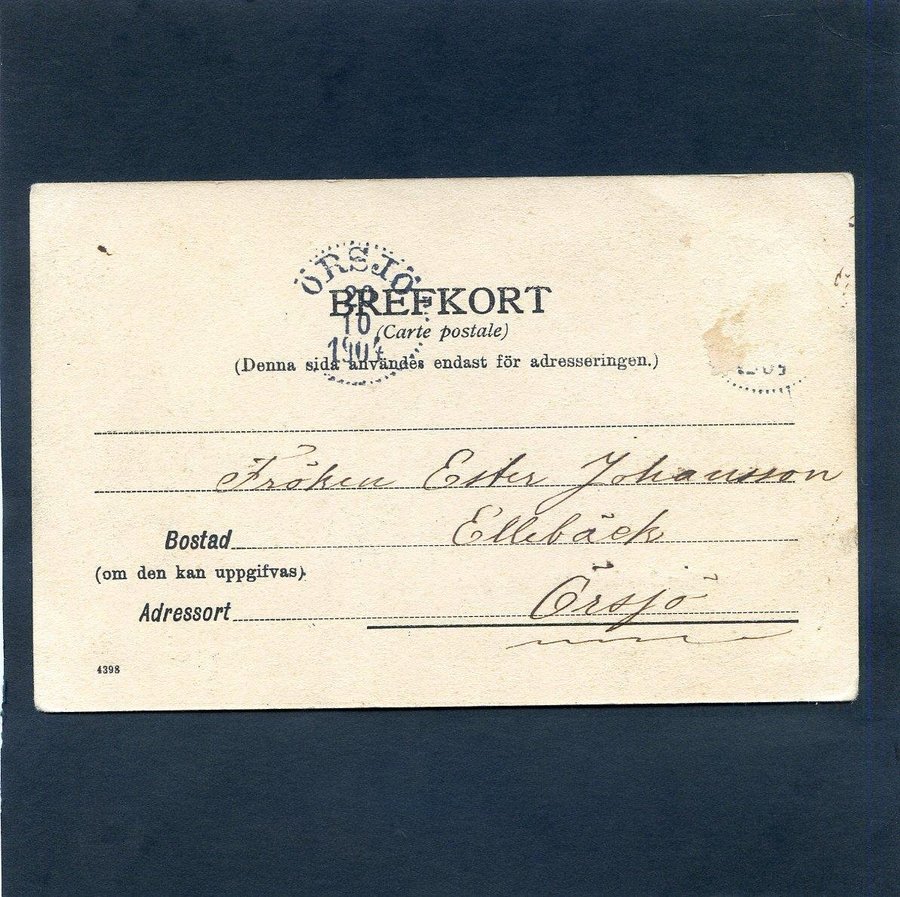 ÖRSJÖ
20
10
1904
BREFKORT
(Carte postale)
(Denna sida användes endast för adresseringen.)
Fröken Ester Johansson
Bostad Ellebäck
(om den kan uppgifvas).
Adressort Örsjö
4398